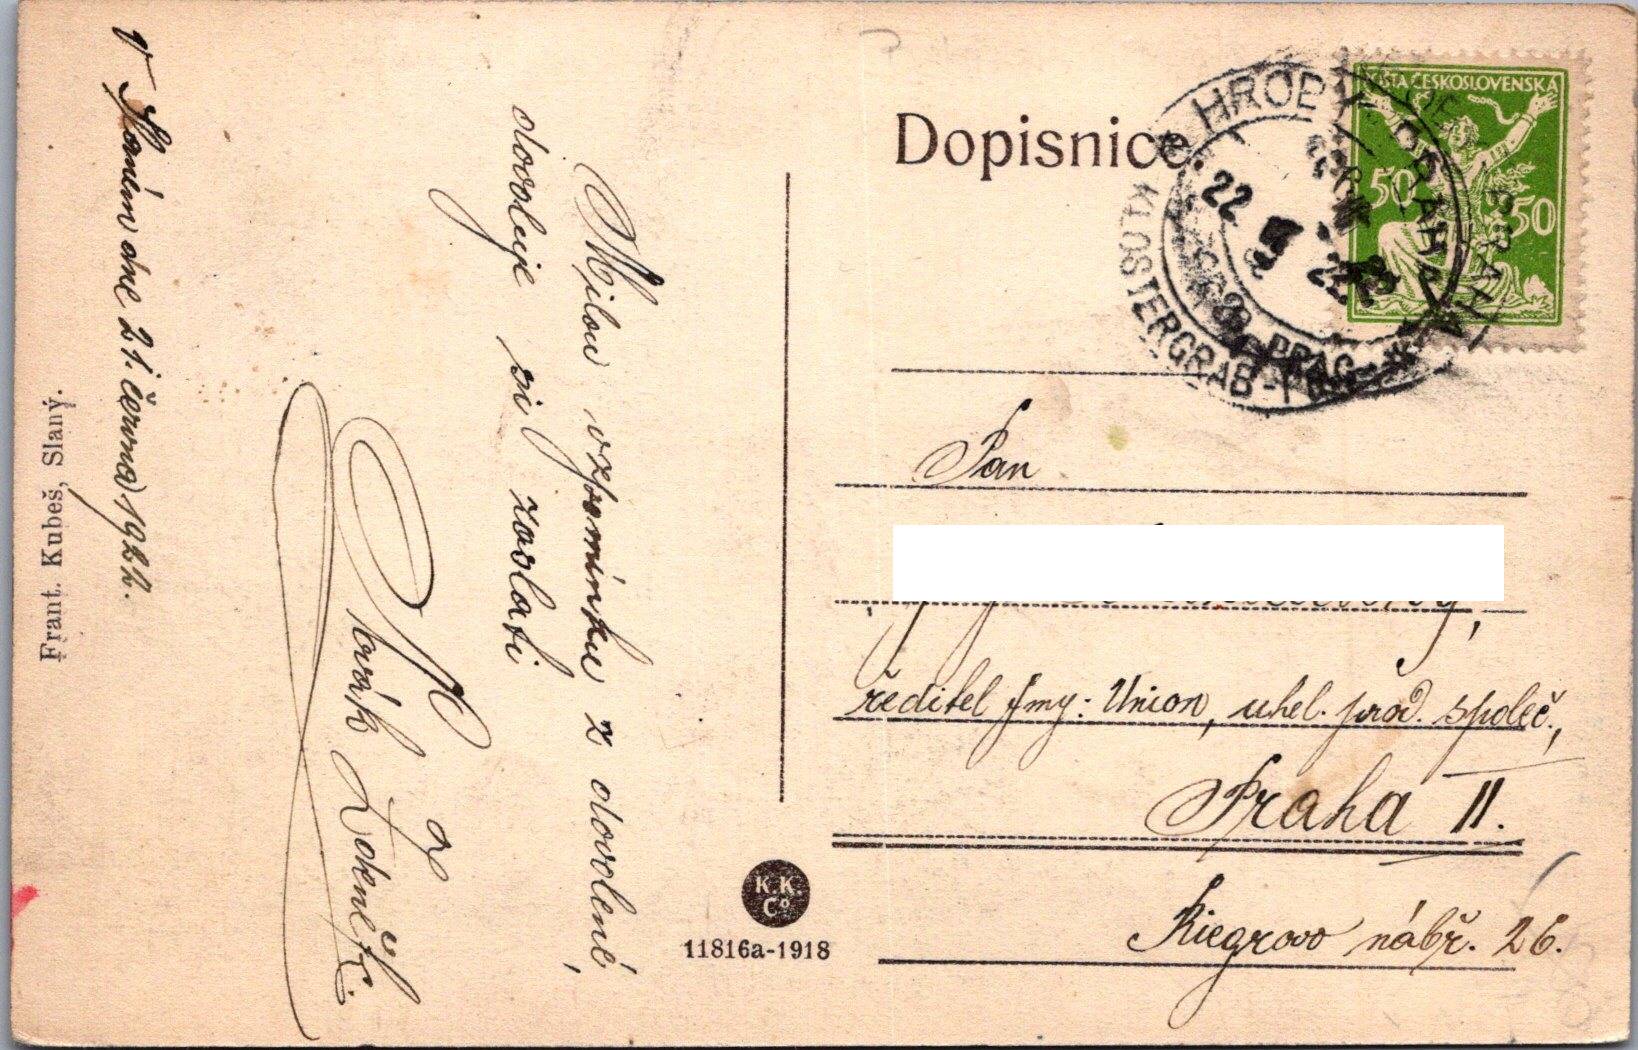 V Slaném dne 21. června 1922.
Milou vzpomínku z dovolené,
dovoluje si zaslati
Novák ze
Frant. Kubeš, Slaný.
Dopisnice.
POŠTA ČESKOSLOVENSKÁ
50 50
HROB
22
KLOSTERGRAB-
PRAHA
PRAG
Pan
ředitel fmy: Union, uhel. prod. společ.,
Praha II.
Riegrovo nábř. 26.
K.K.
Cº
11816a-1918